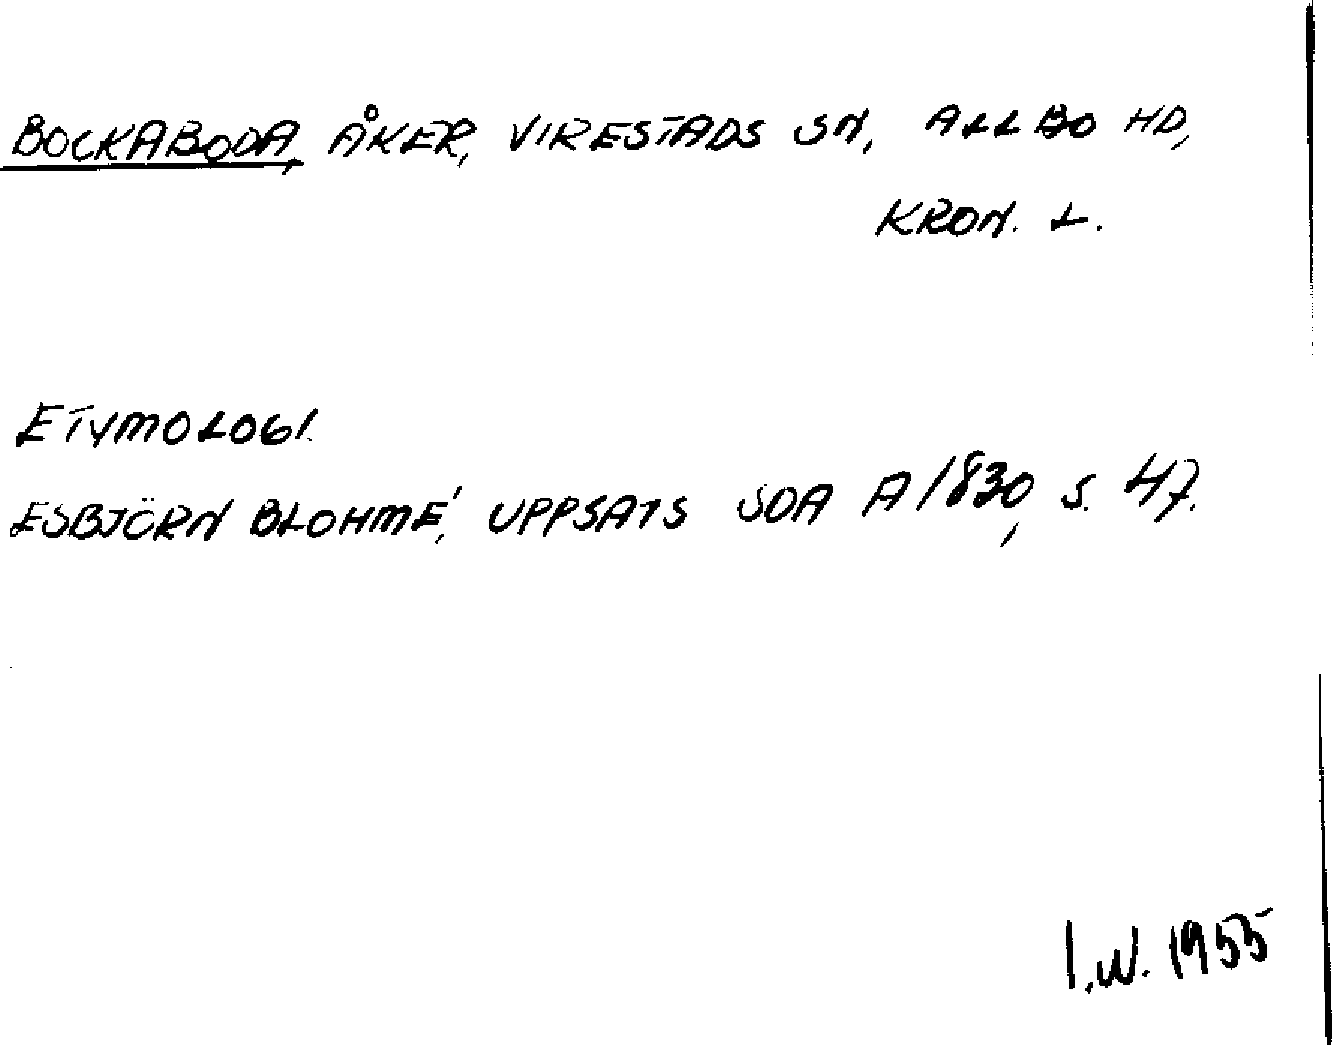 BOCKABODA, ÅKER, VIRESTADS SN, ALLBO HD,
KRON. L.
ETYMOLOGI.
ESBJÖRN BLOHMÉ, UPPSATS SOA A 1830, S. 47.
I.W. 1955